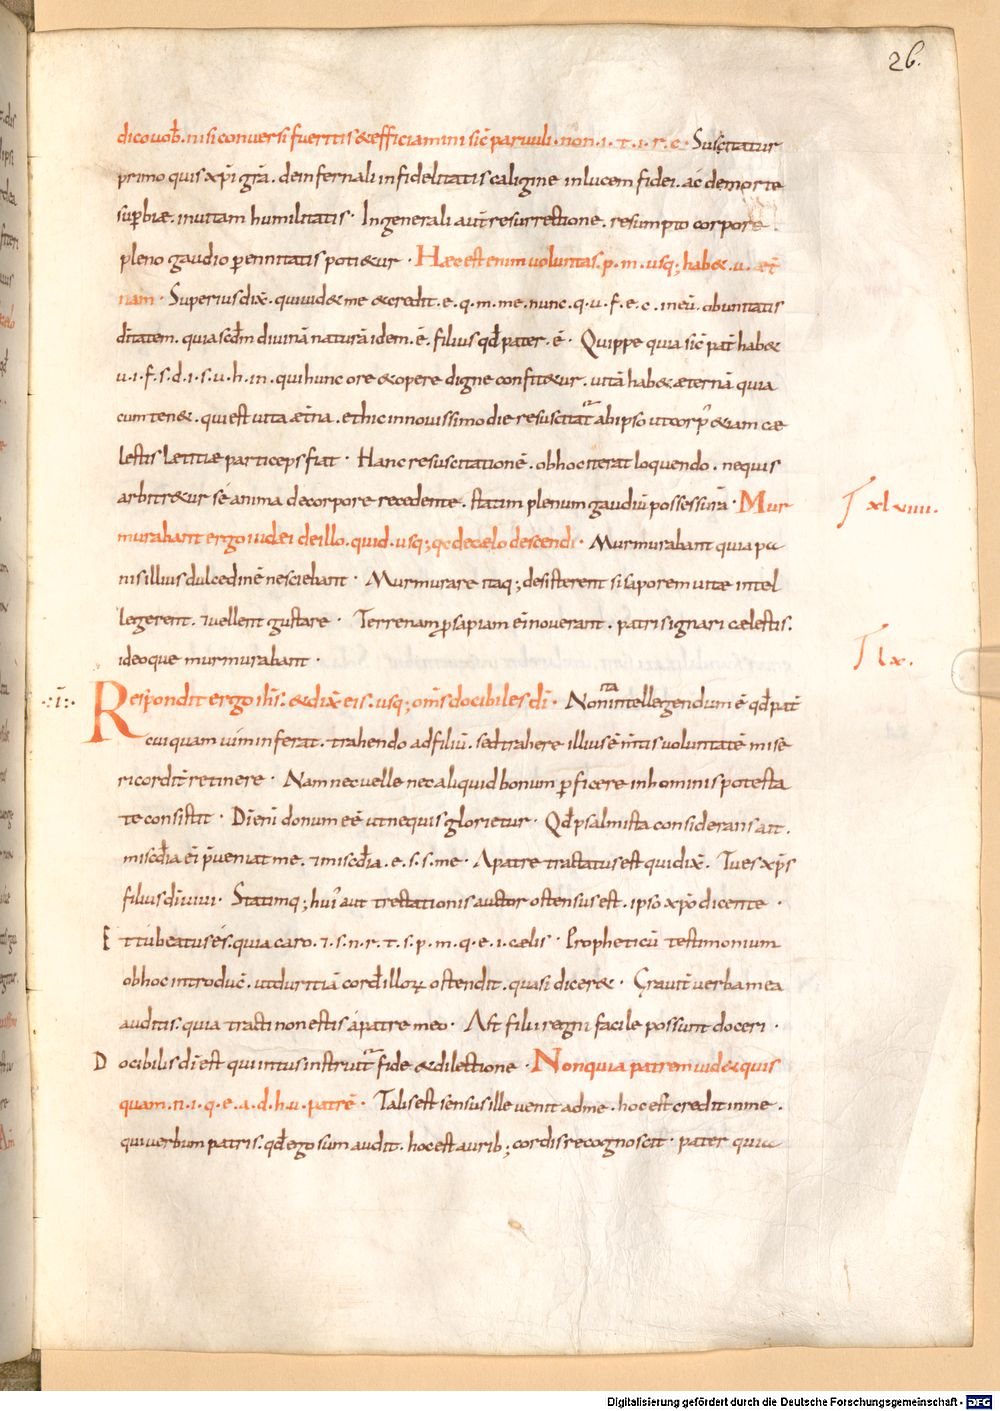 26.
dico vob̄. nisi conversi fueritis & efficiamini sic̄ parvuli. non. i. t. i. r. c. Suscitatur
primo quis xp̄i gr̄a. de infernali infidelitatis caligine in lucem fidei. ac̄ de morte
sup̄biæ. in vitam humilitatis. In generali aut̄ resurrectione. resumpto corpore.
pleno gaudio p̄ennitatis poti&ur. Hæc est enim voluntas. p. m. usq; hab&. v. æt̄
nam. Superius dix̄. qui vid& me & credit. e. q. m. me. nunc. q. v. f. e. c. in eū. ob unitatis
dītatem. quia scd̄m divinā naturā idem. ē. filius qd̄ pater. ē. Quippe quia sic̄ pat̄ hab&
v. i. f. s. d. i. s. v. h. in. qui hunc ore & opere digne confit&ur. vitā hab& æternā quia
cum ten&. qui est vita æt̄na. et hic in novissimo die resuscitat̄ ab ipso ut corp̄ &iam cæ
lestis lætitiæ particeps fiat. Hanc resuscitationē. ob hoc iterat loquendo. ne quis
arbitr&ur sē anima de corpore recedente. statim plenum gaudiū possessurā. Mur
murabant ergo iudei de illo. quid. usq; qc de cælo descendi. Murmurabant quia pa
nis illius dulcedinē nesciebant. Murmurare itaq; desisterent si saporem vitæ intel
legerent. ⁊ vellent gustare. Terrenam p̄sapiam ei noverant. patris ignari cælestis.
ideoque murmurabant.
Respondit ergo ih̄s. & dix̄ eis. usq; om̄s docibiles dī. Non ita intellegendum ē qd̄ pat̄
cuiquam vim inferat. trahendo ad filiū. sed trahere illius ē m̄tis voluntatē mise
ricordit̄ retinere. Nam nec velle nec aliquid bonum p̄ficere in hominis potesta
te consistit. Dī eni donum eē ut ne quis glorietur. Qd̄ psalmista considerans ait.
misc̄dia ei p̄veniat me. ⁊ misc̄dia. e. s. s. me. A patre tractatus est qui dix̄. Tu es xp̄s
filius dī vivi. Statimq; hui᾿ aut̄ trectationis auctor ostensus est. ipso xp̄o dicente.
Et tu beatus es. quia caro. ⁊. s. n. r. t. s. p. m. q. e. i. cælis. Propheticū testimonium
ob hoc introduc̄. ut duritiā cord̄ illoꝝ ostendit. quasi dicer&. Gravit̄ verba mea
auditis. quia tracti non estis a patre meo. Ast filii regni facile possunt doceri.
Docibilis dī est qui intus instruit̄ fide & dilectione. Non quia patrem vid& quis
quam. n. i. q. e. a. d. h. v. patrē. Talis est sensus ille venit ad me. hoc est credit in me.
qui verbum patris. qd̄ ego sum audit. hoc est aurib; cordis recognoscit. pater quia
xl viiii.
lx.
Digitalisierung gefördert durch die Deutsche Forschungsgemeinschaft - DFG